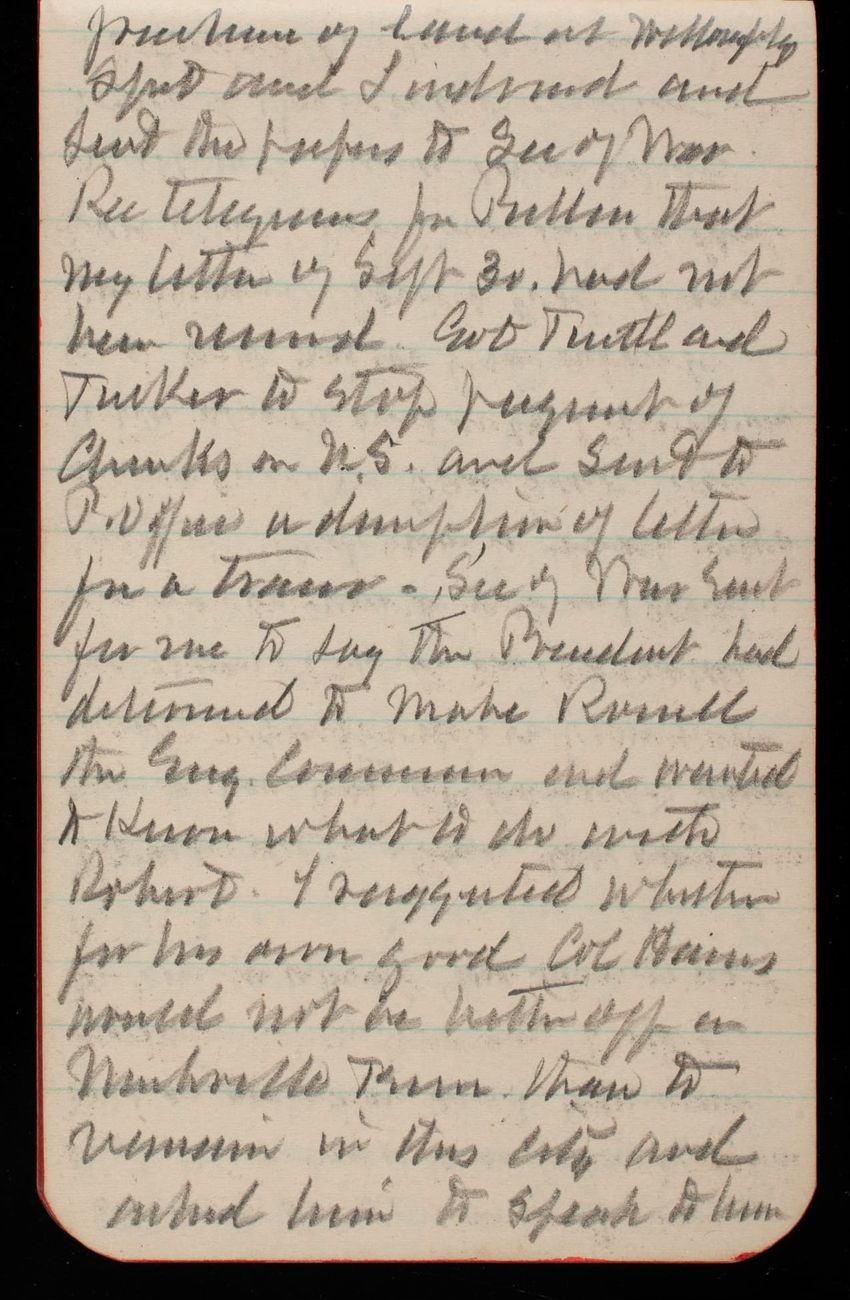 purchase of land at Willoughby
Spit and I indorsed and
Send the papers to Sec of War.
Rec telegrams fr that
my letter of Sept 30. had not
been received. Got and
Tucker to stop payment of
Checks on N.S. and Send to
P. Office a description of letter
for a tracer - Sec of War Sent
for me to say the President had
determined to make
the Eng. Commissioner and wanted
to Know what to do with
Robert. I suggested whether
for his own good Col Hains
would not be better off in
Nashville Tenn. than to
remain in this city and
asked him to speak to him